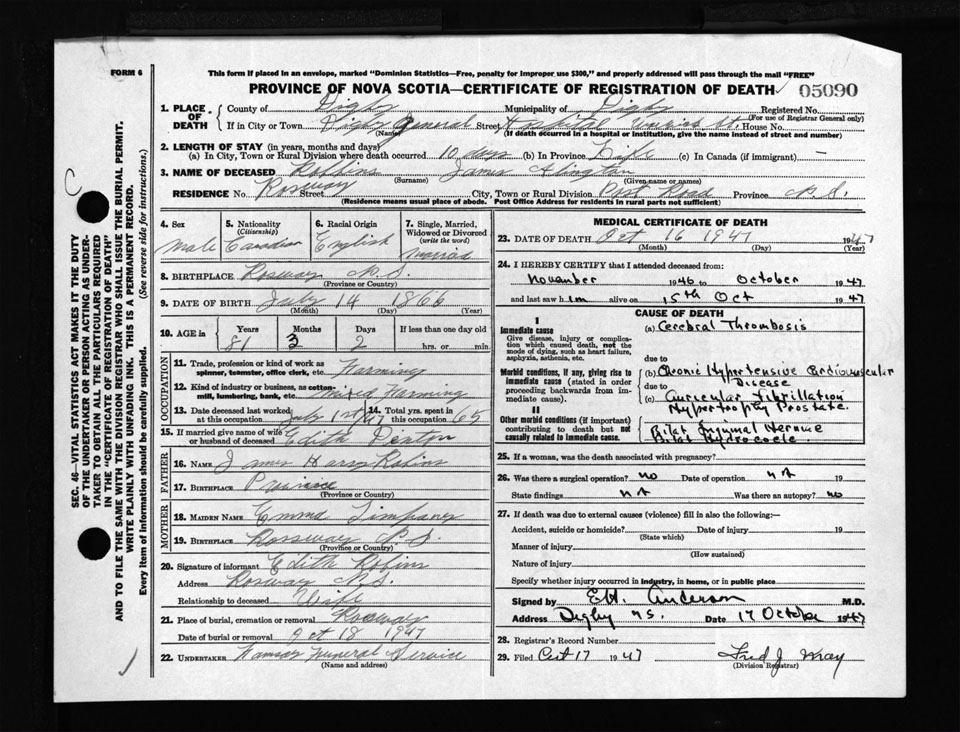 FORM 6
This form if placed in an envelope, marked "Dominion Statistics—Free, penalty for improper use $300," and properly addressed will pass through the mail "FREE"
PROVINCE OF NOVA SCOTIA—CERTIFICATE OF REGISTRATION OF DEATH
05090
1. PLACE OF DEATH
County of Digby Municipality of Digby Registered No.
(For use of Registrar General only)
If in City or Town Digby General Street Hospital St. House No.
(Name) (If death occurred in a hospital or institution, give the name instead of street and number)
2. LENGTH OF STAY (in years, months and days)
(a) In City, Town or Rural Division where death occurred 10 days (b) In Province Life (c) In Canada (if immigrant) —
3. NAME OF DECEASED Robbins James
(Surname) (Given name or names)
RESIDENCE No. Rossway Street City, Town or Rural Division Post Road Province N.S.
(Residence means usual place of abode. Post Office Address for residents in rural parts not sufficient)
4. Sex Male
5. Nationality (Citizenship) Canadian
6. Racial Origin English
7. Single, Married, Widowed or Divorced (write the word) Married
8. BIRTHPLACE Rossway N.S.
(Province or Country)
9. DATE OF BIRTH July 14 1866
(Month) (Day) (Year)
10. AGE in Years Months Days If less than one day old
81 3 2 hrs. or min.
OCCUPATION
11. Trade, profession or kind of work as spinner, teamster, office clerk, etc. Farming
12. Kind of industry or business, as cotton-mill, lumbering, bank, etc. Mixed Farming
13. Date deceased last worked at this occupation July 1st /47
14. Total yrs. spent in this occupation 65
15. If married give name of wife or husband of deceased Edith Denton
FATHER
16. NAME James Robins
17. BIRTHPLACE
(Province or Country)
MOTHER
18. MAIDEN NAME Emma Timpany
19. BIRTHPLACE Rossway N.S.
(Province or Country)
20. Signature of informant Edith Robins
Address Rossway N.S.
Relationship to deceased Wife
21. Place of burial, cremation or removal Rossway
Date of burial or removal Oct 18 1947
22. UNDERTAKER Funeral Service
(Name and address)
MEDICAL CERTIFICATE OF DEATH
23. DATE OF DEATH Oct 16 1947 1947
(Month) (Day) (Year)
24. I HEREBY CERTIFY that I attended deceased from:
November 1946 to October 1947
and last saw him alive on 15th Oct 1947
CAUSE OF DEATH
I
Immediate cause (a) Cerebral Thrombosis
Give disease, injury or complication which caused death, not the mode of dying, such as heart failure, asphyxia, asthenia, etc.
due to
Morbid conditions, if any, giving rise to immediate cause (stated in order proceeding backwards from immediate).
(b) Chronic Hypertensive Cardiovascular Disease
due to
(c) Auricular Fibrillation
Hypertrophy Prostate.
II
Other morbid conditions (if important) contributing to death but not causally related to immediate cause.
Bilat Inguinal Herniae
Bilat Hydrocele.
25. If a woman, was the death associated with pregnancy?
26. Was there a surgical operation? no Date of operation NA 19
State findings NA Was there an autopsy? no
27. If death was due to external causes (violence) fill in also the following:—
Accident, suicide or homicide? Date of injury 19
(State which)
Manner of injury
(How sustained)
Nature of injury
Specify whether injury occurred in industry, in home, or in public place
Signed by Anderson M.D.
Address Digby NS. Date 17 October 1947
28. Registrar's Record Number
29. Filed Oct 17 1947 Fred J. Wray
(Division Registrar)
SEC. 46—VITAL STATISTICS ACT MAKES IT THE DUTY
OF THE UNDERTAKER OR PERSON ACTING AS UNDER-
TAKER TO OBTAIN ALL THE PARTICULARS REQUIRED
IN THE "CERTIFICATE OF REGISTRATION OF DEATH"
AND TO FILE THE SAME WITH THE DIVISION REGISTRAR WHO SHALL ISSUE THE BURIAL PERMIT.
WRITE PLAINLY WITH UNFADING INK. THIS IS A PERMANENT RECORD.
Every item of information should be carefully supplied. (See reverse side for instructions.)